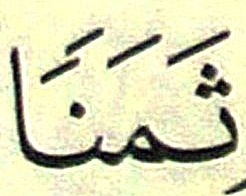 ثَمَنًا